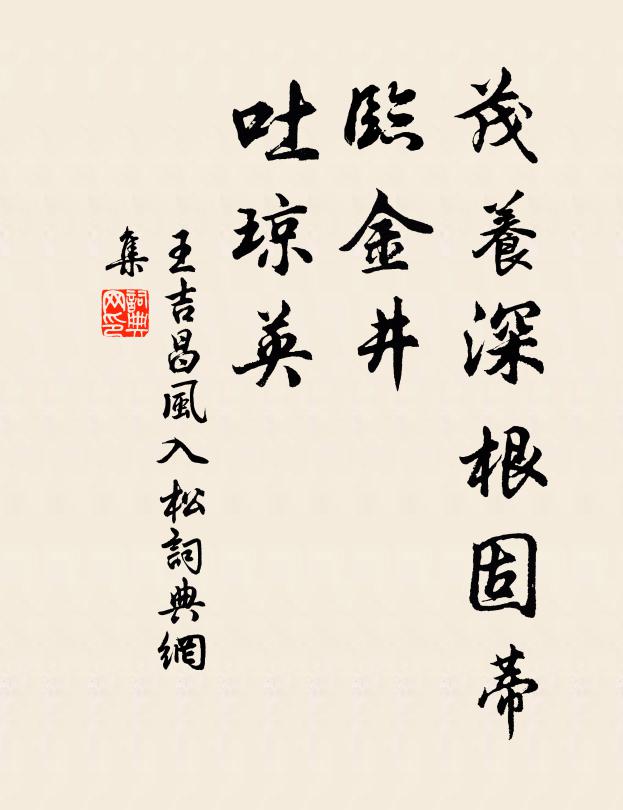 茂養深根固蒂
臨金井
吐琼英
王吉昌風入松詞典網
集
詞典
网印